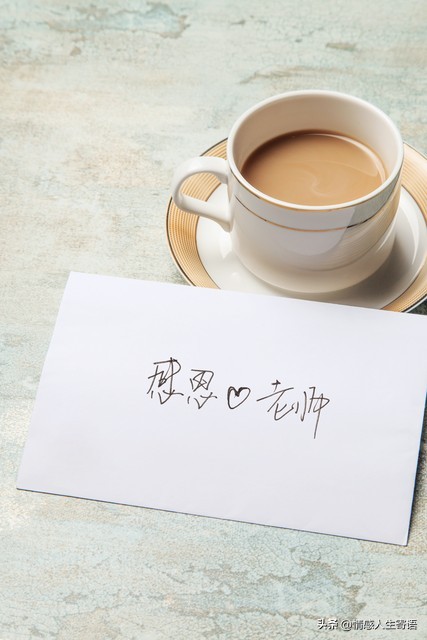 感恩♡老师
头条 @情感人生寄语